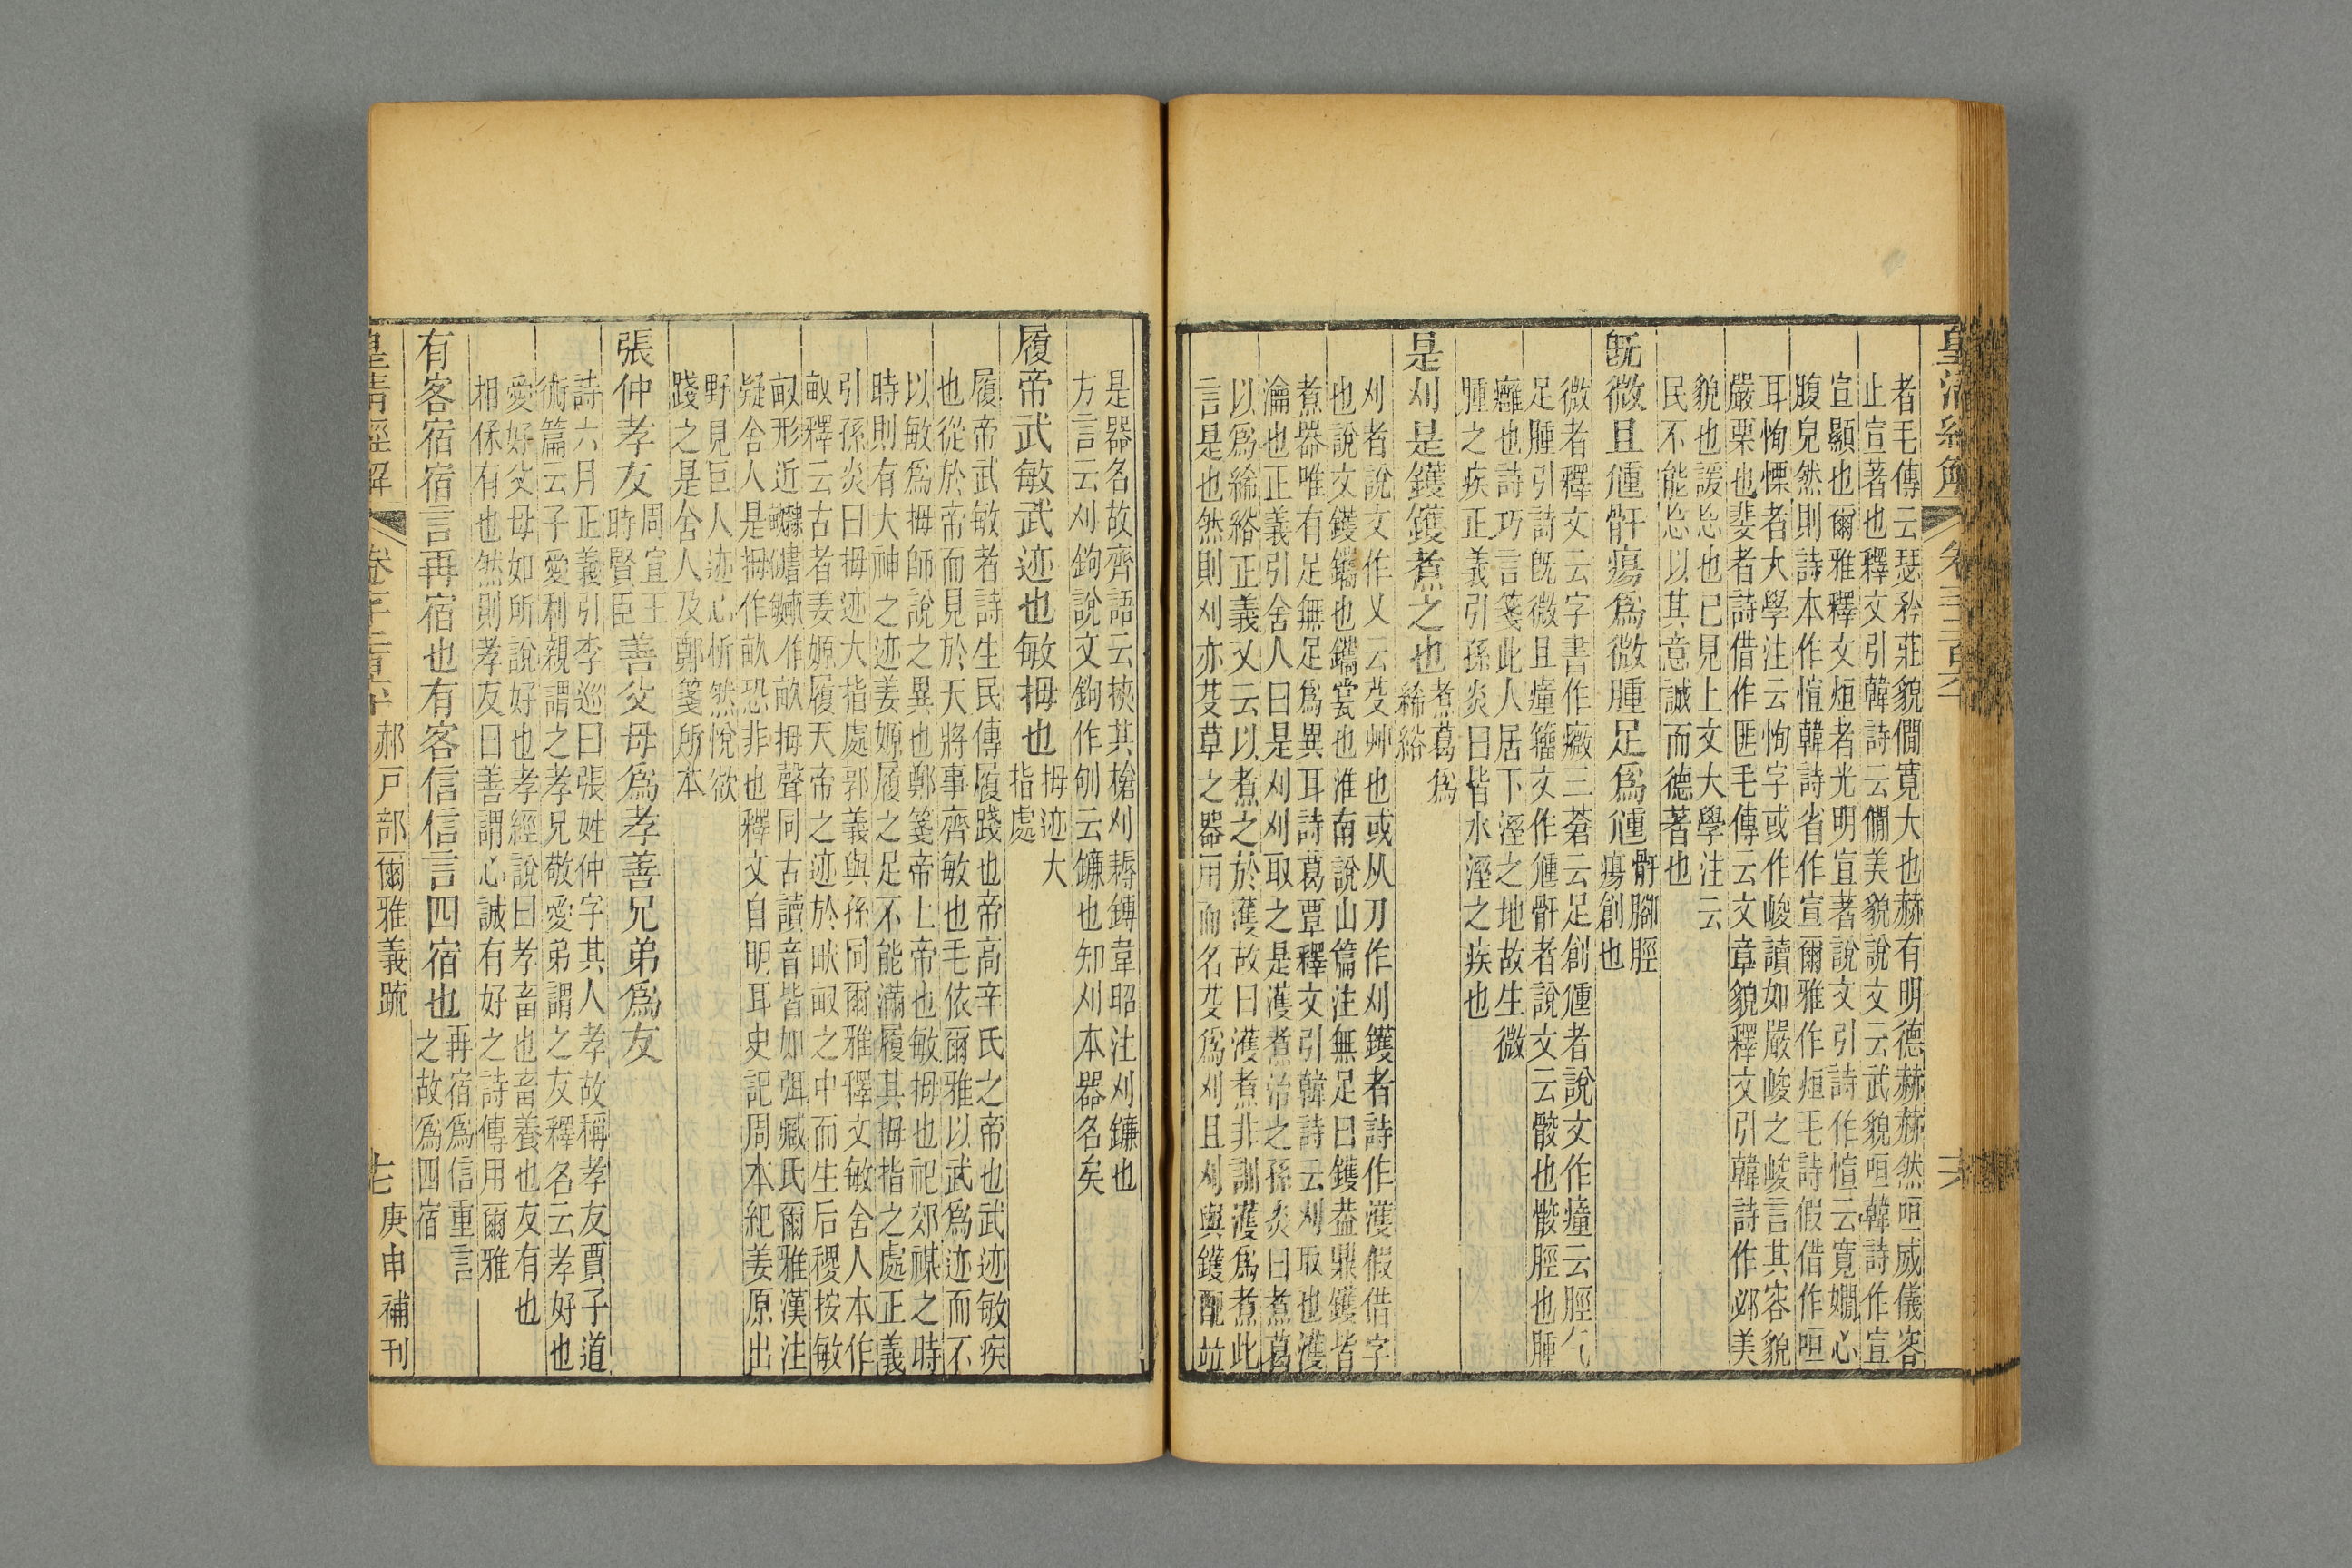 皇清經解
者毛傳云瑟矜莊貌僩寬大也赫有明德赫赫然咺威儀容
止宣著也釋文引韓詩云僩美貌說文云武貌咺韓詩作宣
宣顯也爾雅釋文烜者光明宣著說文引詩作愃云寬嫺心
腹皃然則詩本作愃韓詩省作宣爾雅作烜毛詩假借作咺
耳恂慄者大學注云恂字或作峻讀如嚴峻之峻言其容貌
嚴栗也斐者詩借作匪毛傳云文章貌釋文引韓詩作邲美
貌也諼忘也已見上文大學注云
民不能忘以其意誠而德著也
旣微且尰骭瘍爲微腫足爲尰
骭腳脛
瘍創也
微者釋文云字書作癓三蒼云足創尰者說文作瘇云脛气
足腫引詩旣微且瘇籀文作尰骭者說文云骸也骸脛也腫
癰也詩巧言箋此人居下溼之地故生微
腫之疾正義引孫炎曰皆水溼之疾也
是刈是鑊鑊煮之也
煮葛爲
絺綌
刈者說文作乂云芟艸也或从刀作刈鑊者詩作濩假借字
也說文鑊鑴也鑴瓽也淮南說山篇注無足曰鑊葢鼎鑊皆
煮器唯有足無足爲異耳詩葛覃釋文引韓詩云刈取也濩
瀹也正義引舍人曰是刈刈取之是濩煮治之孫炎曰煮葛
以爲絺綌正義又云以煮之於濩故曰濩煮非訓濩爲煮此
言是也然則刈亦芟草之器用而名芟爲刈且刈與鑊配竝
是器名故齊語云挾其槍刈耨鎛韋昭注刈鐮也
方言云刈鉤說文鉤作刨云鐮也知刈本器名矣
履帝武敏武迹也敏拇也
拇迹大
指處
履帝武敏者詩生民傳履踐也帝高辛氏之帝也武迹敏疾
也從於帝而見於天將事齊敏也毛依爾雅以武爲迹而不
以敏爲拇師說之異也鄭箋帝上帝也敏拇也祀郊禖之時
時則有大神之迹姜嫄履之足不能滿履其拇指之處正義
引孫炎曰拇迹大指處郭義與孫同爾雅釋文敏舍人本作
畝釋云古者姜嫄履天帝之迹於畎畝之中而生后稷按敏
疑舍人是拇作畝恐非也釋文自明耳史記周本紀姜原出
野見巨人迹心忻然悅欲
踐之是舍人及鄭箋所本
張仲孝友
周宣王
時賢臣
善父母爲孝善兄弟爲友
詩六月正義引李巡曰張姓仲字其人孝故稱孝友賈子道
術篇云子愛利親謂之孝兄敬愛弟謂之友釋名云孝好也
愛好父母如所說好也孝經說曰孝畜也畜養也友有也
相保有也然則孝友曰善謂心誠有好之詩傳用爾雅
有客宿宿言再宿也有客信信言四宿也
再宿爲信重言
之故爲四宿
郝戶部爾雅義疏
庚申補刊